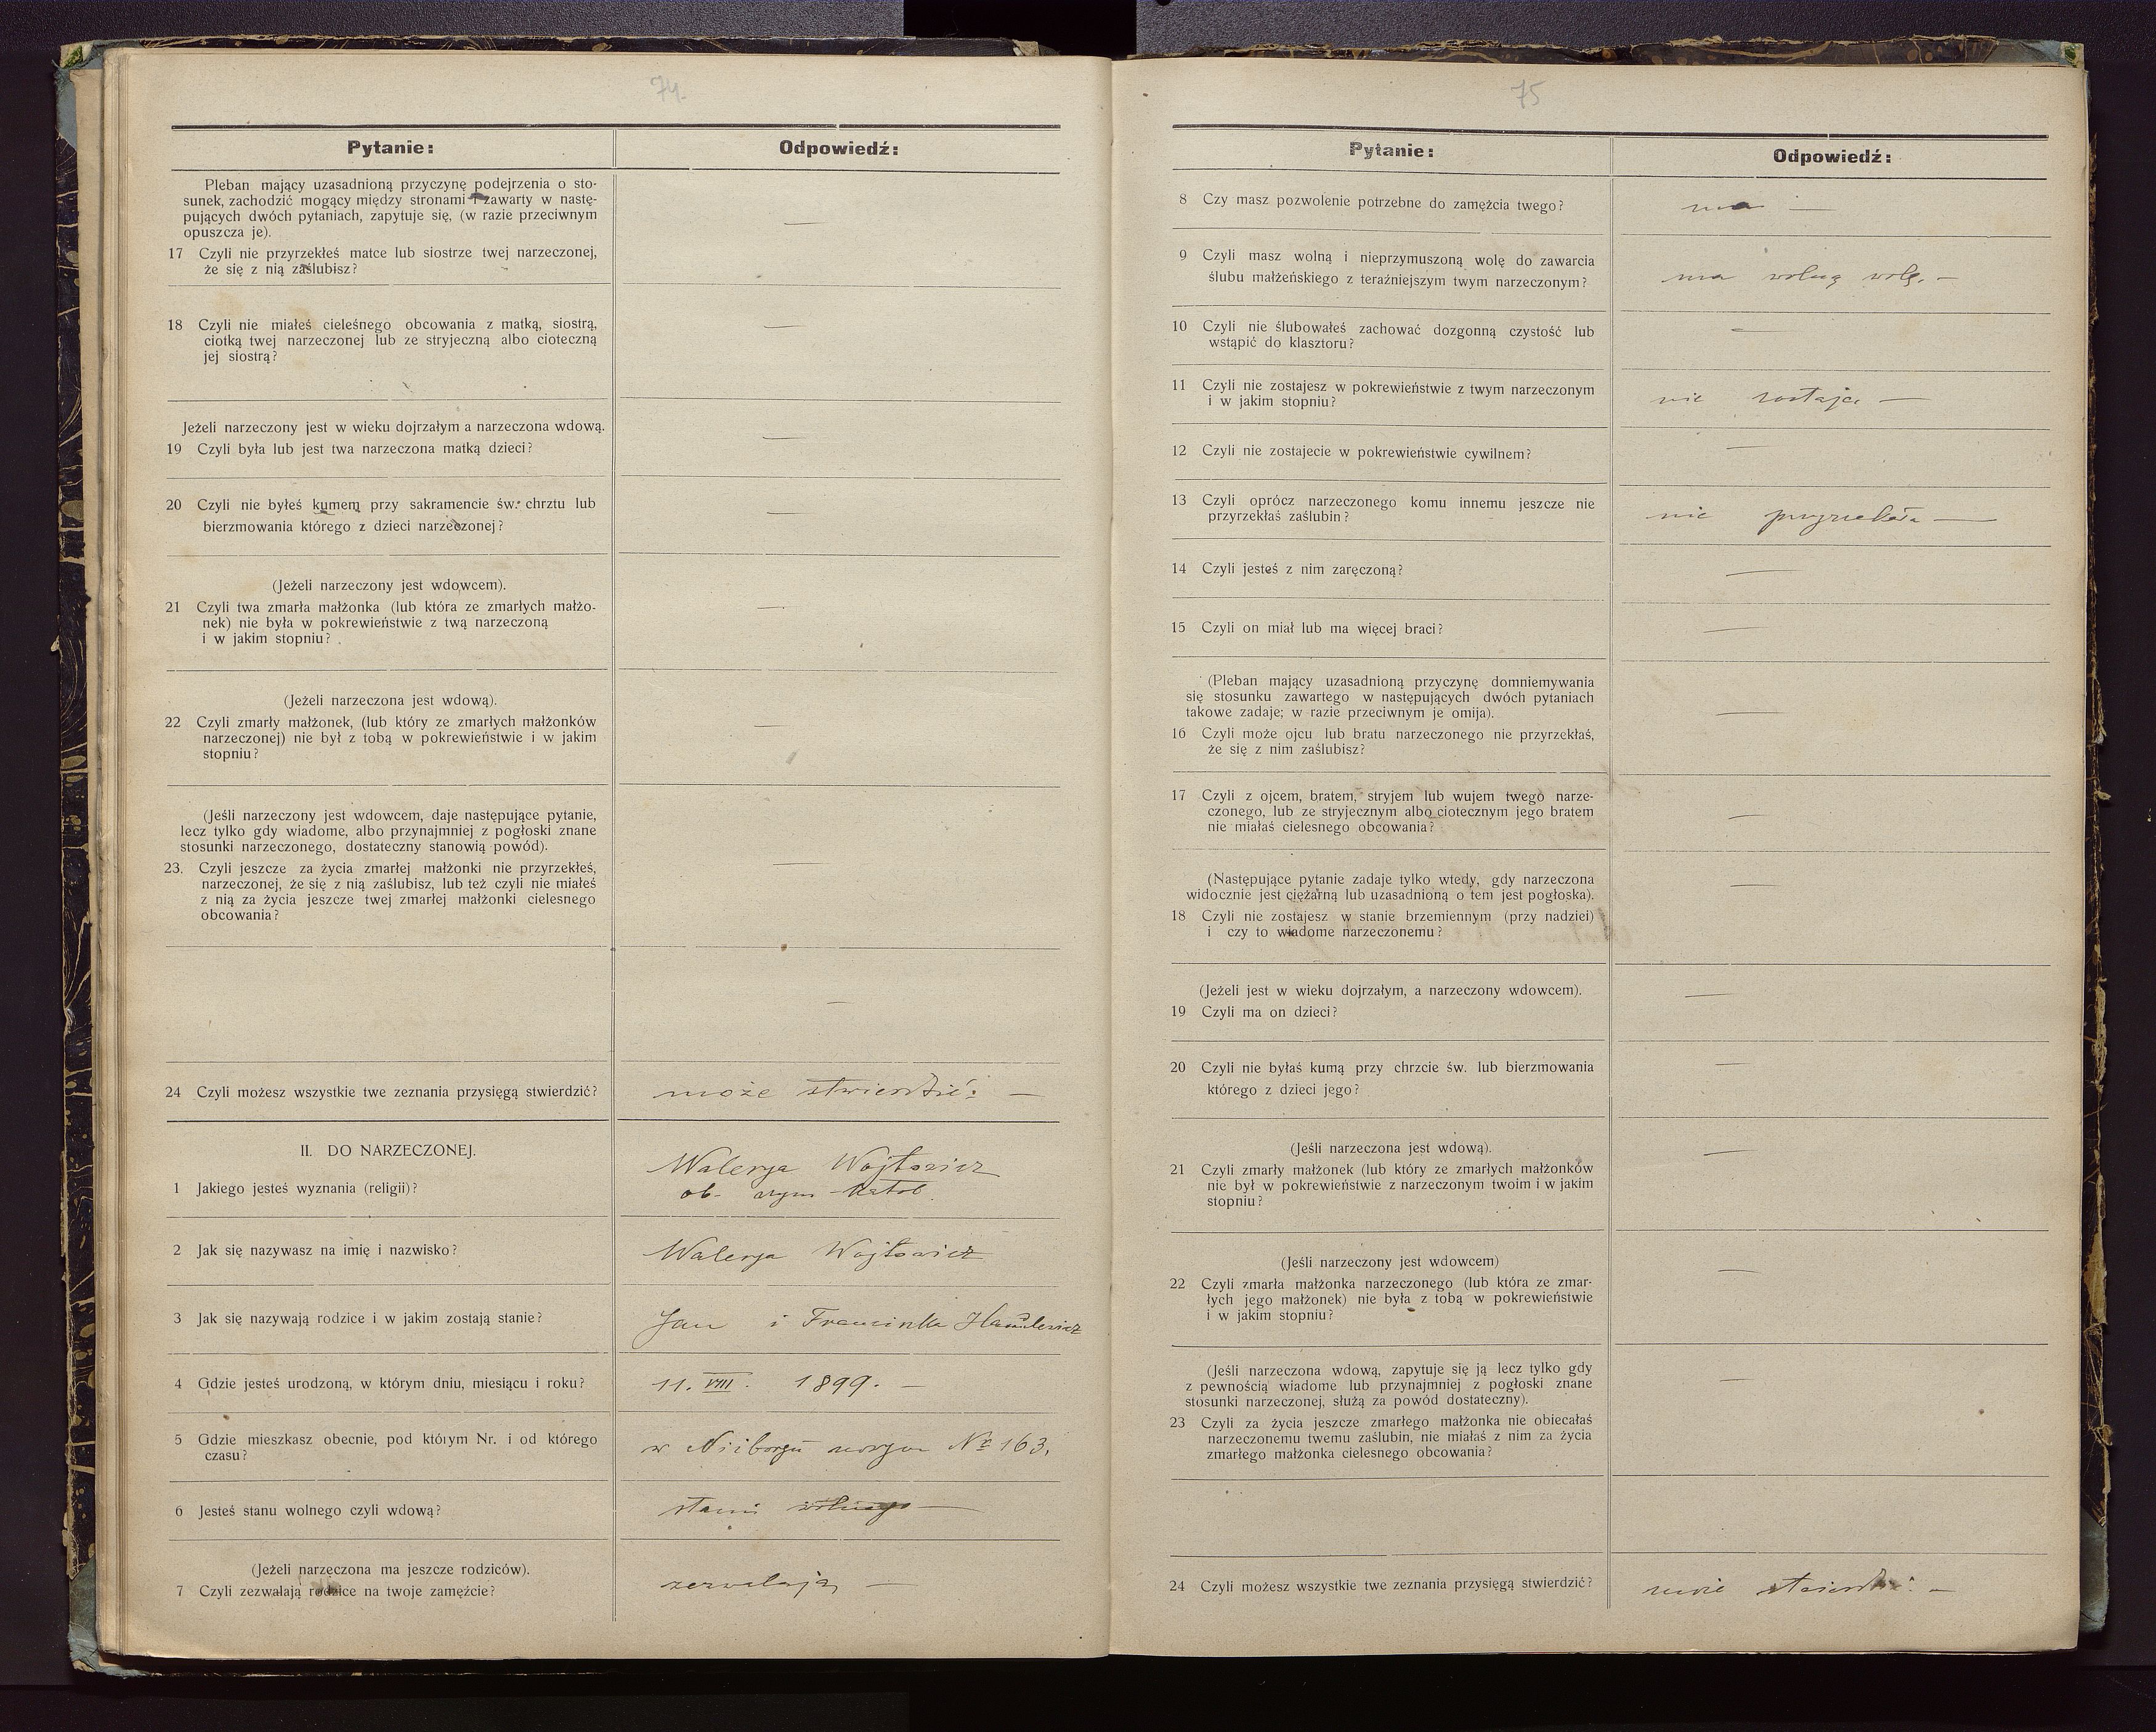 74.
Pytanie:
Odpowiedź:
Pleban mający uzasadnioną przyczynę podejrzenia o sto-
sunek, zachodzić mogący między stronami i zawarty w nastę-
pujących dwóch pytaniach, zapytuje się, (w razie przeciwnym
opuszcza je).
—
17 Czyli nie przyrzekłeś matce lub siostrze twej narzeczonej,
że się z nią zaślubisz?
18 Czyli nie miałeś cieleśnego obcowania z matką, siostrą,
ciotką twej narzeczonej lub ze stryjeczną albo cioteczną
jej siostrą?
—
Jeżeli narzeczony jest w wieku dojrzałym a narzeczona wdową.
19 Czyli była lub jest twa narzeczona matką dzieci?
—
20 Czyli nie byłeś kumem przy sakramencie św. chrztu lub
bierzmowania którego z dzieci narzeczonej?
—
(Jeżeli narzeczony jest wdowcem).
21 Czyli twa zmarła małżonka (lub która ze zmarłych małżo-
nek) nie była w pokrewieństwie z twą narzeczoną
i w jakim stopniu?
—
(Jeżeli narzeczona jest wdową).
22 Czyli zmarły małżonek, (lub który ze zmarłych małżonków
narzeczonej) nie był z tobą w pokrewieństwie i w jakim
stopniu?
—
(Jeśli narzeczony jest wdowcem, daje następujące pytanie,
lecz tylko gdy wiadome, albo przynajmniej z pogłoski znane
stosunki narzeczonego, dostateczny stanowią powód).
23. Czyli jeszcze za życia zmarłej małżonki nie przyrzekłeś,
narzeczonej, że się z nią zaślubisz, lub też czyli nie miałeś
z nią za życia jeszcze twej zmarłej małżonki cielesnego
obcowania?
—
—
24 Czyli możesz wszystkie twe zeznania przysięgą stwierdzić?
może stwierdzić: —
II. DO NARZECZONEJ.
1 Jakiego jesteś wyznania (religii)?
Walerya Wojtowicz
ob. rzym-katol.
2 Jak się nazywasz na imię i nazwisko?
Walerya Wojtowicz
3 Jak się nazywają rodzice i w jakim zostają stanie?
Jan i
4 Gdzie jesteś urodzoną, w którym dniu, miesiącu i roku?
11. VIII. 1899. —
5 Gdzie mieszkasz obecnie, pod którym Nr. i od którego
czasu?
w № 163.
6 Jesteś stanu wolnego czyli wdową?
stanu wolnego —
(Jeżeli narzeczona ma jeszcze rodziców).
7 Czyli zezwalają rodzice na twoje zamęźcie?
zezwalają —
75
Pytanie:
Odpowiedź:
8 Czy masz pozwolenie potrzebne do zamężcia twego?
ma —
9 Czyli masz wolną i nieprzymuszoną wolę do zawarcia
ślubu małżeńskiego z teraźniejszym twym narzeczonym?
ma wolną wolę. —
10 Czyli nie ślubowałeś zachować dozgonną czystość lub
wstąpić do klasztoru?
—
11 Czyli nie zostajesz w pokrewieństwie z twym narzeczonym
i w jakim stopniu?
nie zostaje. —
12 Czyli nie zostajecie w pokrewieństwie cywilnem?
—
13 Czyli oprócz narzeczonego komu innemu jeszcze nie
przyrzekłaś zaślubin?
nie przyrzekła —
14 Czyli jesteś z nim zaręczoną?
—
15 Czyli on miał lub ma więcej braci?
—
(Pleban mający uzasadnioną przyczynę domniemywania
się stosunku zawartego w następujących dwóch pytaniach
takowe zadaje; w razie przeciwnym je omija).
—
16 Czyli może ojcu lub bratu narzeczonego nie przyrzekłaś,
że się z nim zaślubisz?
17 Czyli z ojcem, bratem, stryjem lub wujem twego narze-
czonego, lub ze stryjecznym albo ciotecznym jego bratem
nie miałaś cielesnego obcowania?
—
(Następujące pytanie zadaje tylko wtedy, gdy narzeczona
widocznie jest ciężarną lub uzasadnioną o tem jest pogłoska).
—
18 Czyli nie zostajesz w stanie brzemiennym (przy nadziei)
i czy to wiadome narzeczonemu?
(Jeżeli jest w wieku dojrzałym, a narzeczony wdowcem).
—
19 Czyli ma on dzieci?
20 Czyli nie byłaś kumą przy chrzcie św. lub bierzmowania
którego z dzieci jego?
—
(Jeśli narzeczona jest wdową).
—
21 Czyli zmarły małżonek (lub który ze zmarłych małżonków
nie był w pokrewieństwie z narzeczonym twoim i w jakim
stopniu?
(Jeśli narzeczony jest wdowcem)
—
22 Czyli zmarła małżonka narzeczonego (lub która ze zmar-
łych jego małżonek) nie była z tobą w pokrewieństwie
i w jakim stopniu?
(Jeśli narzeczona wdową, zapytuje się ją lecz tylko gdy
z pewnością wiadome lub przynajmniej z pogłoski znane
stosunki narzeczonej, służą za powód dostateczny).
—
23 Czyli za życia jeszcze zmarłego małżonka nie obiecałaś
narzeczonemu twemu zaślubin, nie miałaś z nim za życia
zmarłego małżonka cielesnego obcowania?
24 Czyli możesz wszystkie twe zeznania przysięgą stwierdzić?
może stwierdzić: —